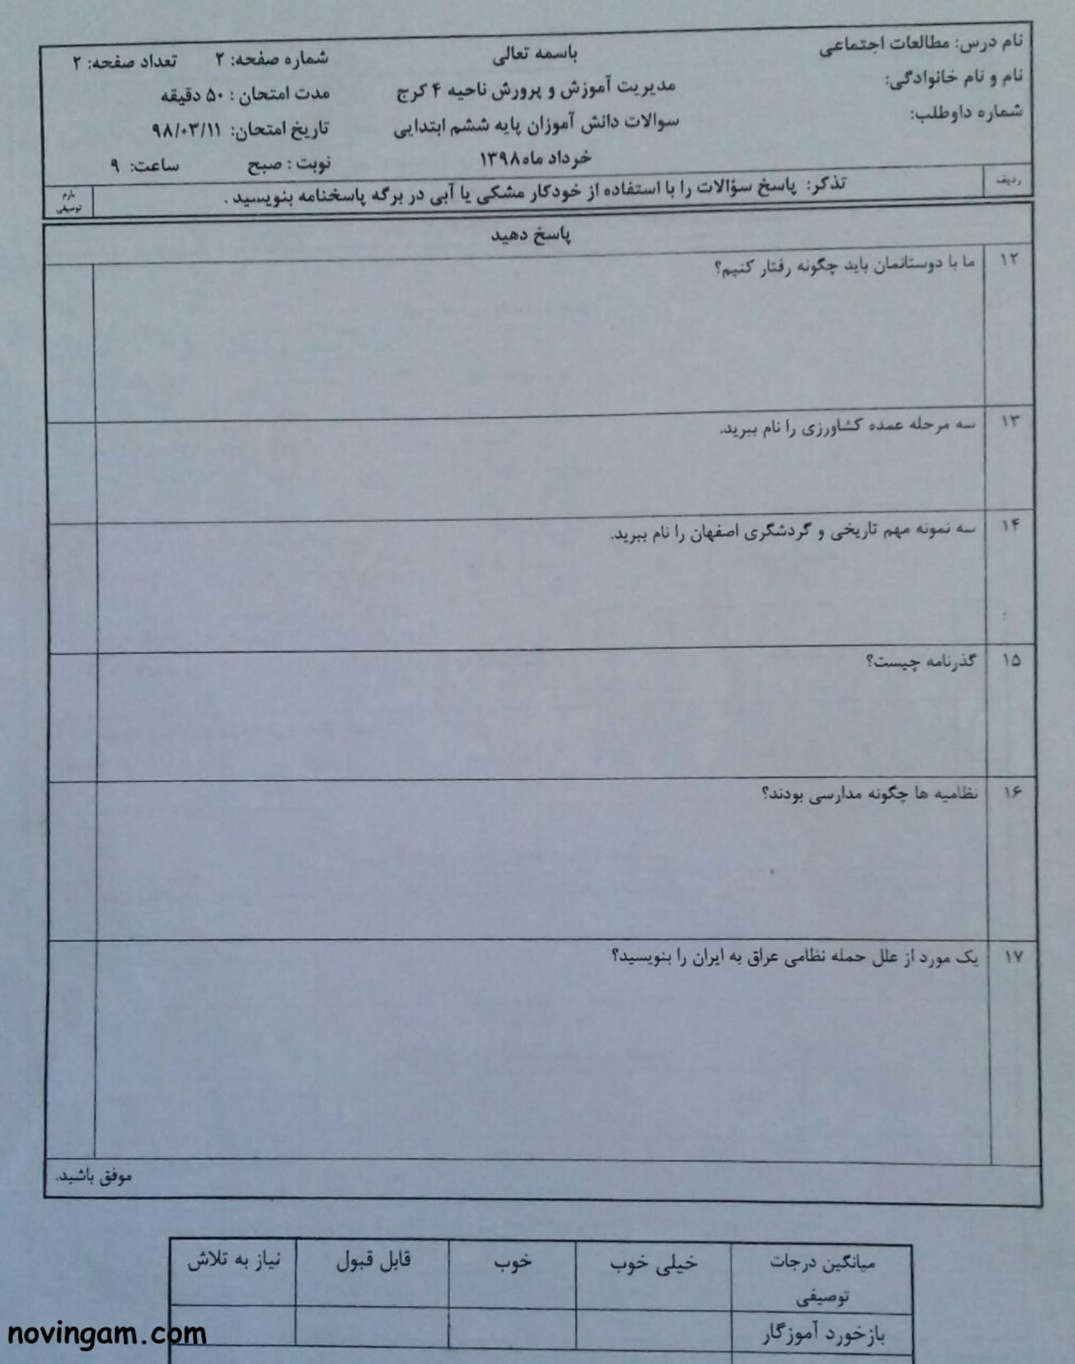 نام درس: مطالعات اجتماعی
نام و نام خانوادگی:
شماره داوطلب:
باسمه تعالی
مدیریت آموزش و پرورش ناحیه ۴ کرج
سوالات دانش آموزان پایه ششم ابتدایی
خرداد ماه ۱۳۹۸
شماره صفحه: ۲ تعداد صفحه: ۲
مدت امتحان : ۵۰ دقیقه
تاریخ امتحان: ۹۸/۰۳/۱۱
نوبت : صبح ساعت: ۹
ردیف
تذکر: پاسخ سؤالات را با استفاده از خودکار مشکی یا آبی در برگه پاسخنامه بنویسید .
بارم
توصیفی
پاسخ دهید
۱۲ ما با دوستانمان باید چگونه رفتار کنیم؟
۱۳ سه مرحله عمده کشاورزی را نام ببرید.
۱۴ سه نمونه مهم تاریخی و گردشگری اصفهان را نام ببرید.
۱۵ گذرنامه چیست؟
۱۶ نظامیه ها چگونه مدارسی بودند؟
۱۷ یک مورد از علل حمله نظامی عراق به ایران را بنویسید؟
موفق باشید.
میانگین درجات
توصیفی
خیلی خوب
خوب
قابل قبول
نیاز به تلاش
بازخورد آموزگار
novingam.com